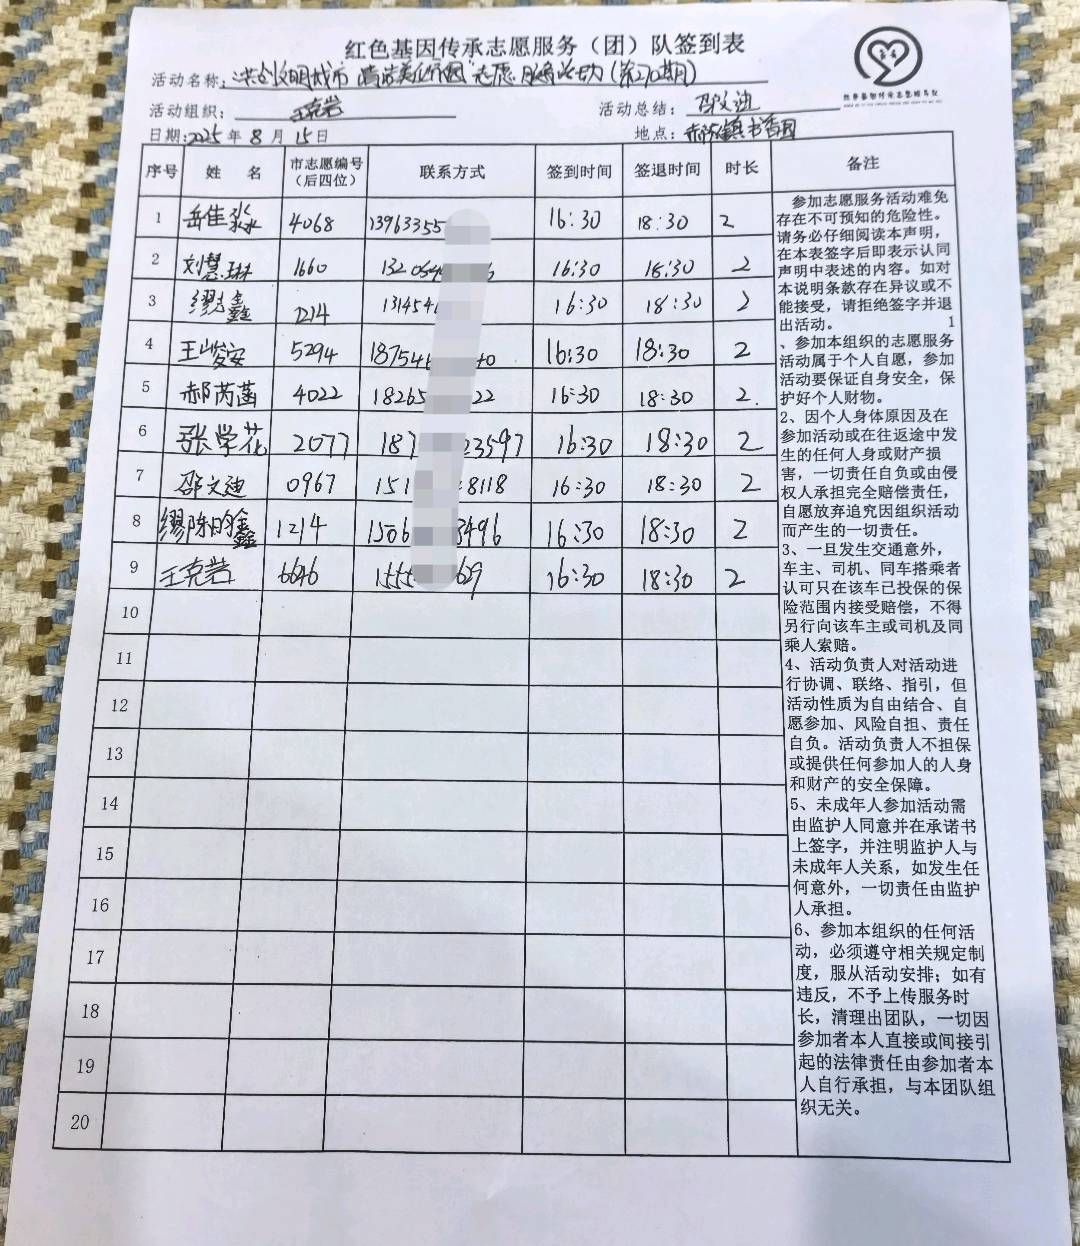 红色基因传承志愿服务（团）队签到表
活动名称：共创文明城市 清洁美化家园"志愿服务活动(第270期)
活动组织：王克岩 活动总结：邵文迪
日期：2025年8月15日 地点：书香园
序号 姓名 市志愿编号（后四位） 联系方式 签到时间 签退时间 时长 备注
1 岳佳淼 4068 13963355 16:30 18:30 2
2 刘慧琳 1660 16:30 18:30 2
3 缪鑫 1214 131454 16:30 18:30 2
4 王峻安 5294 18754 40 16:30 18:30 2
5 郝芮菡 4022 18265 22 16:30 18:30 2.
6 张学花 2077 187 23597 16:30 18:30 2
7 邵文迪 0967 151 8118 16:30 18:30 2
8 缪陈昀鑫 1214 1506 3496 16:30 18:30 2
9 王克岩 6646 1555 629 16:30 18:30 2
10
11
12
13
14
15
16
17
18
19
20
参加志愿服务活动难免
存在不可预知的危险性。
请务必仔细阅读本声明，
在本表签字后即表示认同
声明中表述的内容。如对
本说明条款存在异议或不
能接受，请拒绝签字并退
出活动。 1
、参加本组织的志愿服务
活动属于个人自愿，参加
活动要保证自身安全，保
护好个人财物。
2、因个人身体原因及在
参加活动或在往返途中发
生的任何人身或财产损
害，一切责任自负或由侵
权人承担完全赔偿责任，
自愿放弃追究因组织活动
而产生的一切责任。
3、一旦发生交通意外，
车主、司机、同车搭乘者
认可只在该车已投保的保
险范围内接受赔偿，不得
另行向该车主或司机及同
乘人索赔。
4、活动负责人对活动进
行协调、联络、指引，但
活动性质为自由结合、自
愿参加、风险自担、责任
自负。活动负责人不担保
或提供任何参加人的人身
和财产的安全保障。
5、未成年人参加活动需
由监护人同意并在承诺书
上签字，并注明监护人与
未成年人关系，如发生任
何意外，一切责任由监护
人承担。
6、参加本组织的任何活
动，必须遵守相关规定制
度，服从活动安排；如有
违反，不予上传服务时
长，清理出团队，一切因
参加者本人直接或间接引
起的法律责任由参加者本
人自行承担，与本团队组
织无关。